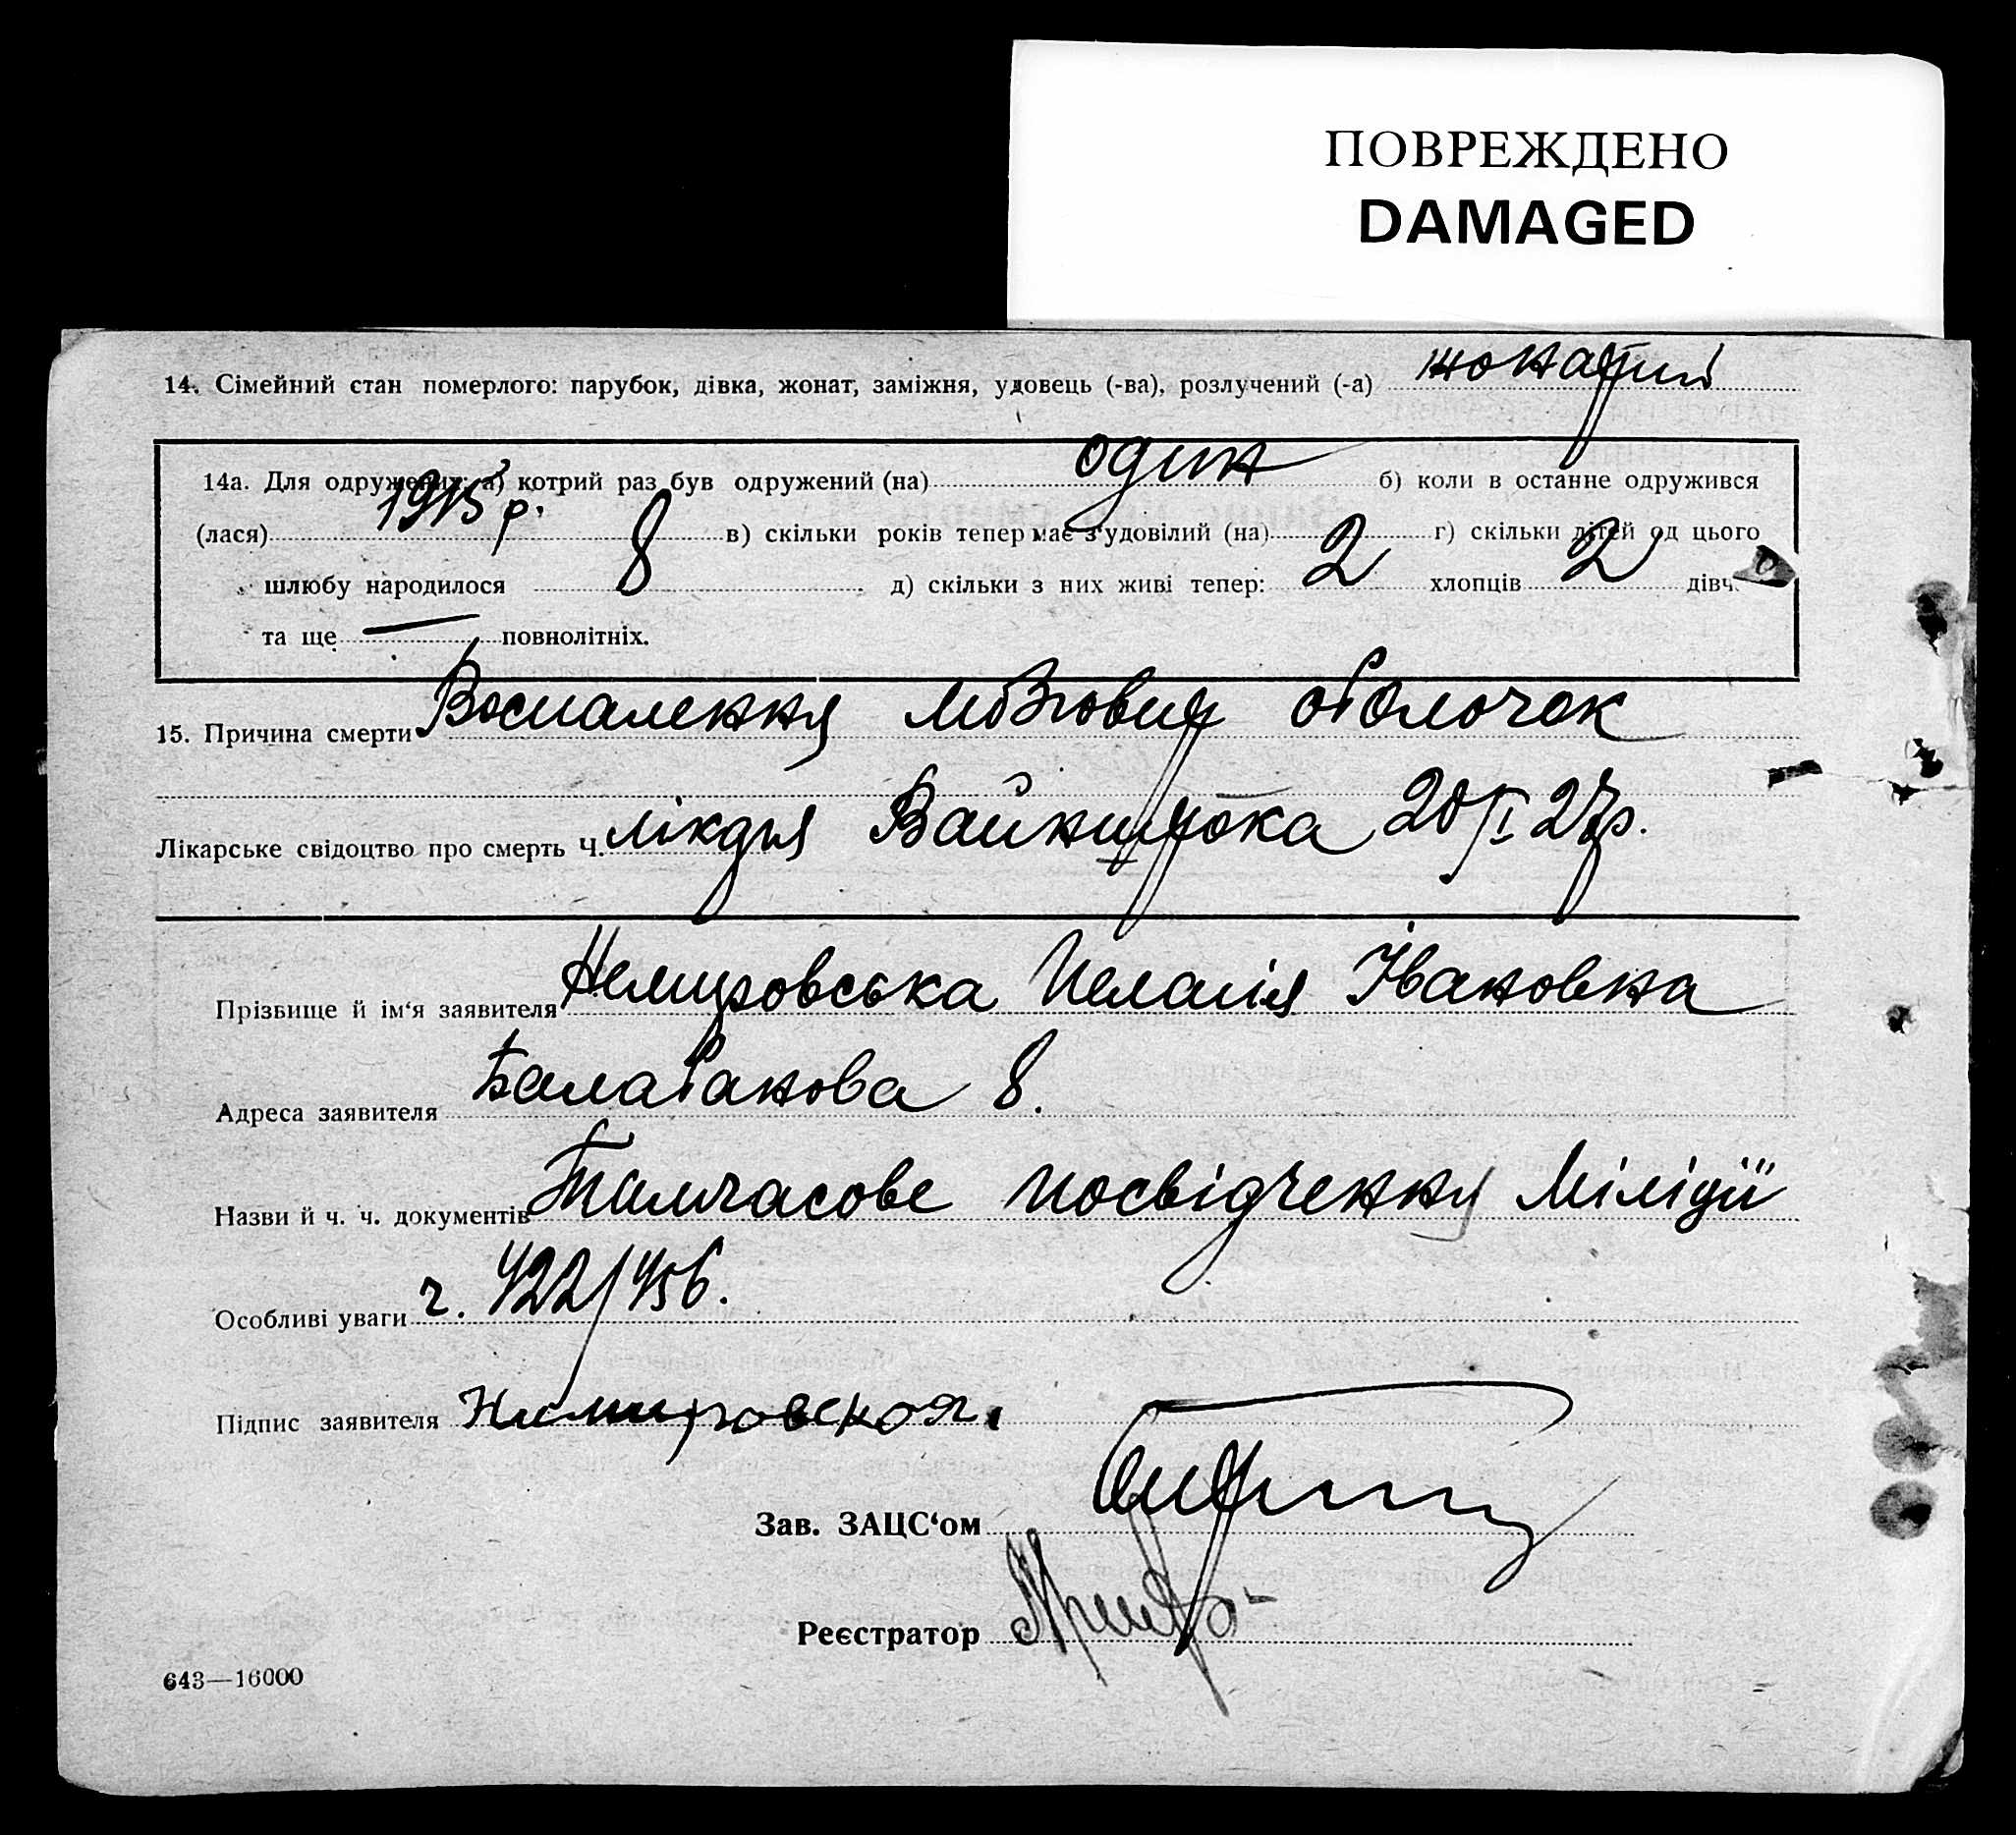 ПОВРЕЖДЕНО
DAMAGED
14. Сімейний стан померлого: парубок, дівка, жонат, заміжня, удовець (-ва), розлучений (-а) жонатий
14а. Для одружених: а) котрий раз був одружений (на) один б) коли в останне одружився
(лася) 1915 р. в) скільки років тепер має з удовілий (на) г) скільки дітей од цього
шлюбу народилося 8 д) скільки з них живі тепер: 2 хлопців 2 дівч.
та ще — повнолітніх.
15. Причина смерти Воспалення мозгових оболочок
Лікарське свідоцтво про смерть Ч. лікаря 20/I 27р.
Прізвище й ім'я заявителя Немировська Пелагія Івановна
Адреса заявителя Балабанова 8.
Назви й ч. ч. документів Тимчасове посвідчення Міліції
Особливі уваги ч. 422/456.
Підпис заявителя Немировская.
Зав. ЗАЦС'ом
Реєстратор
643—16000